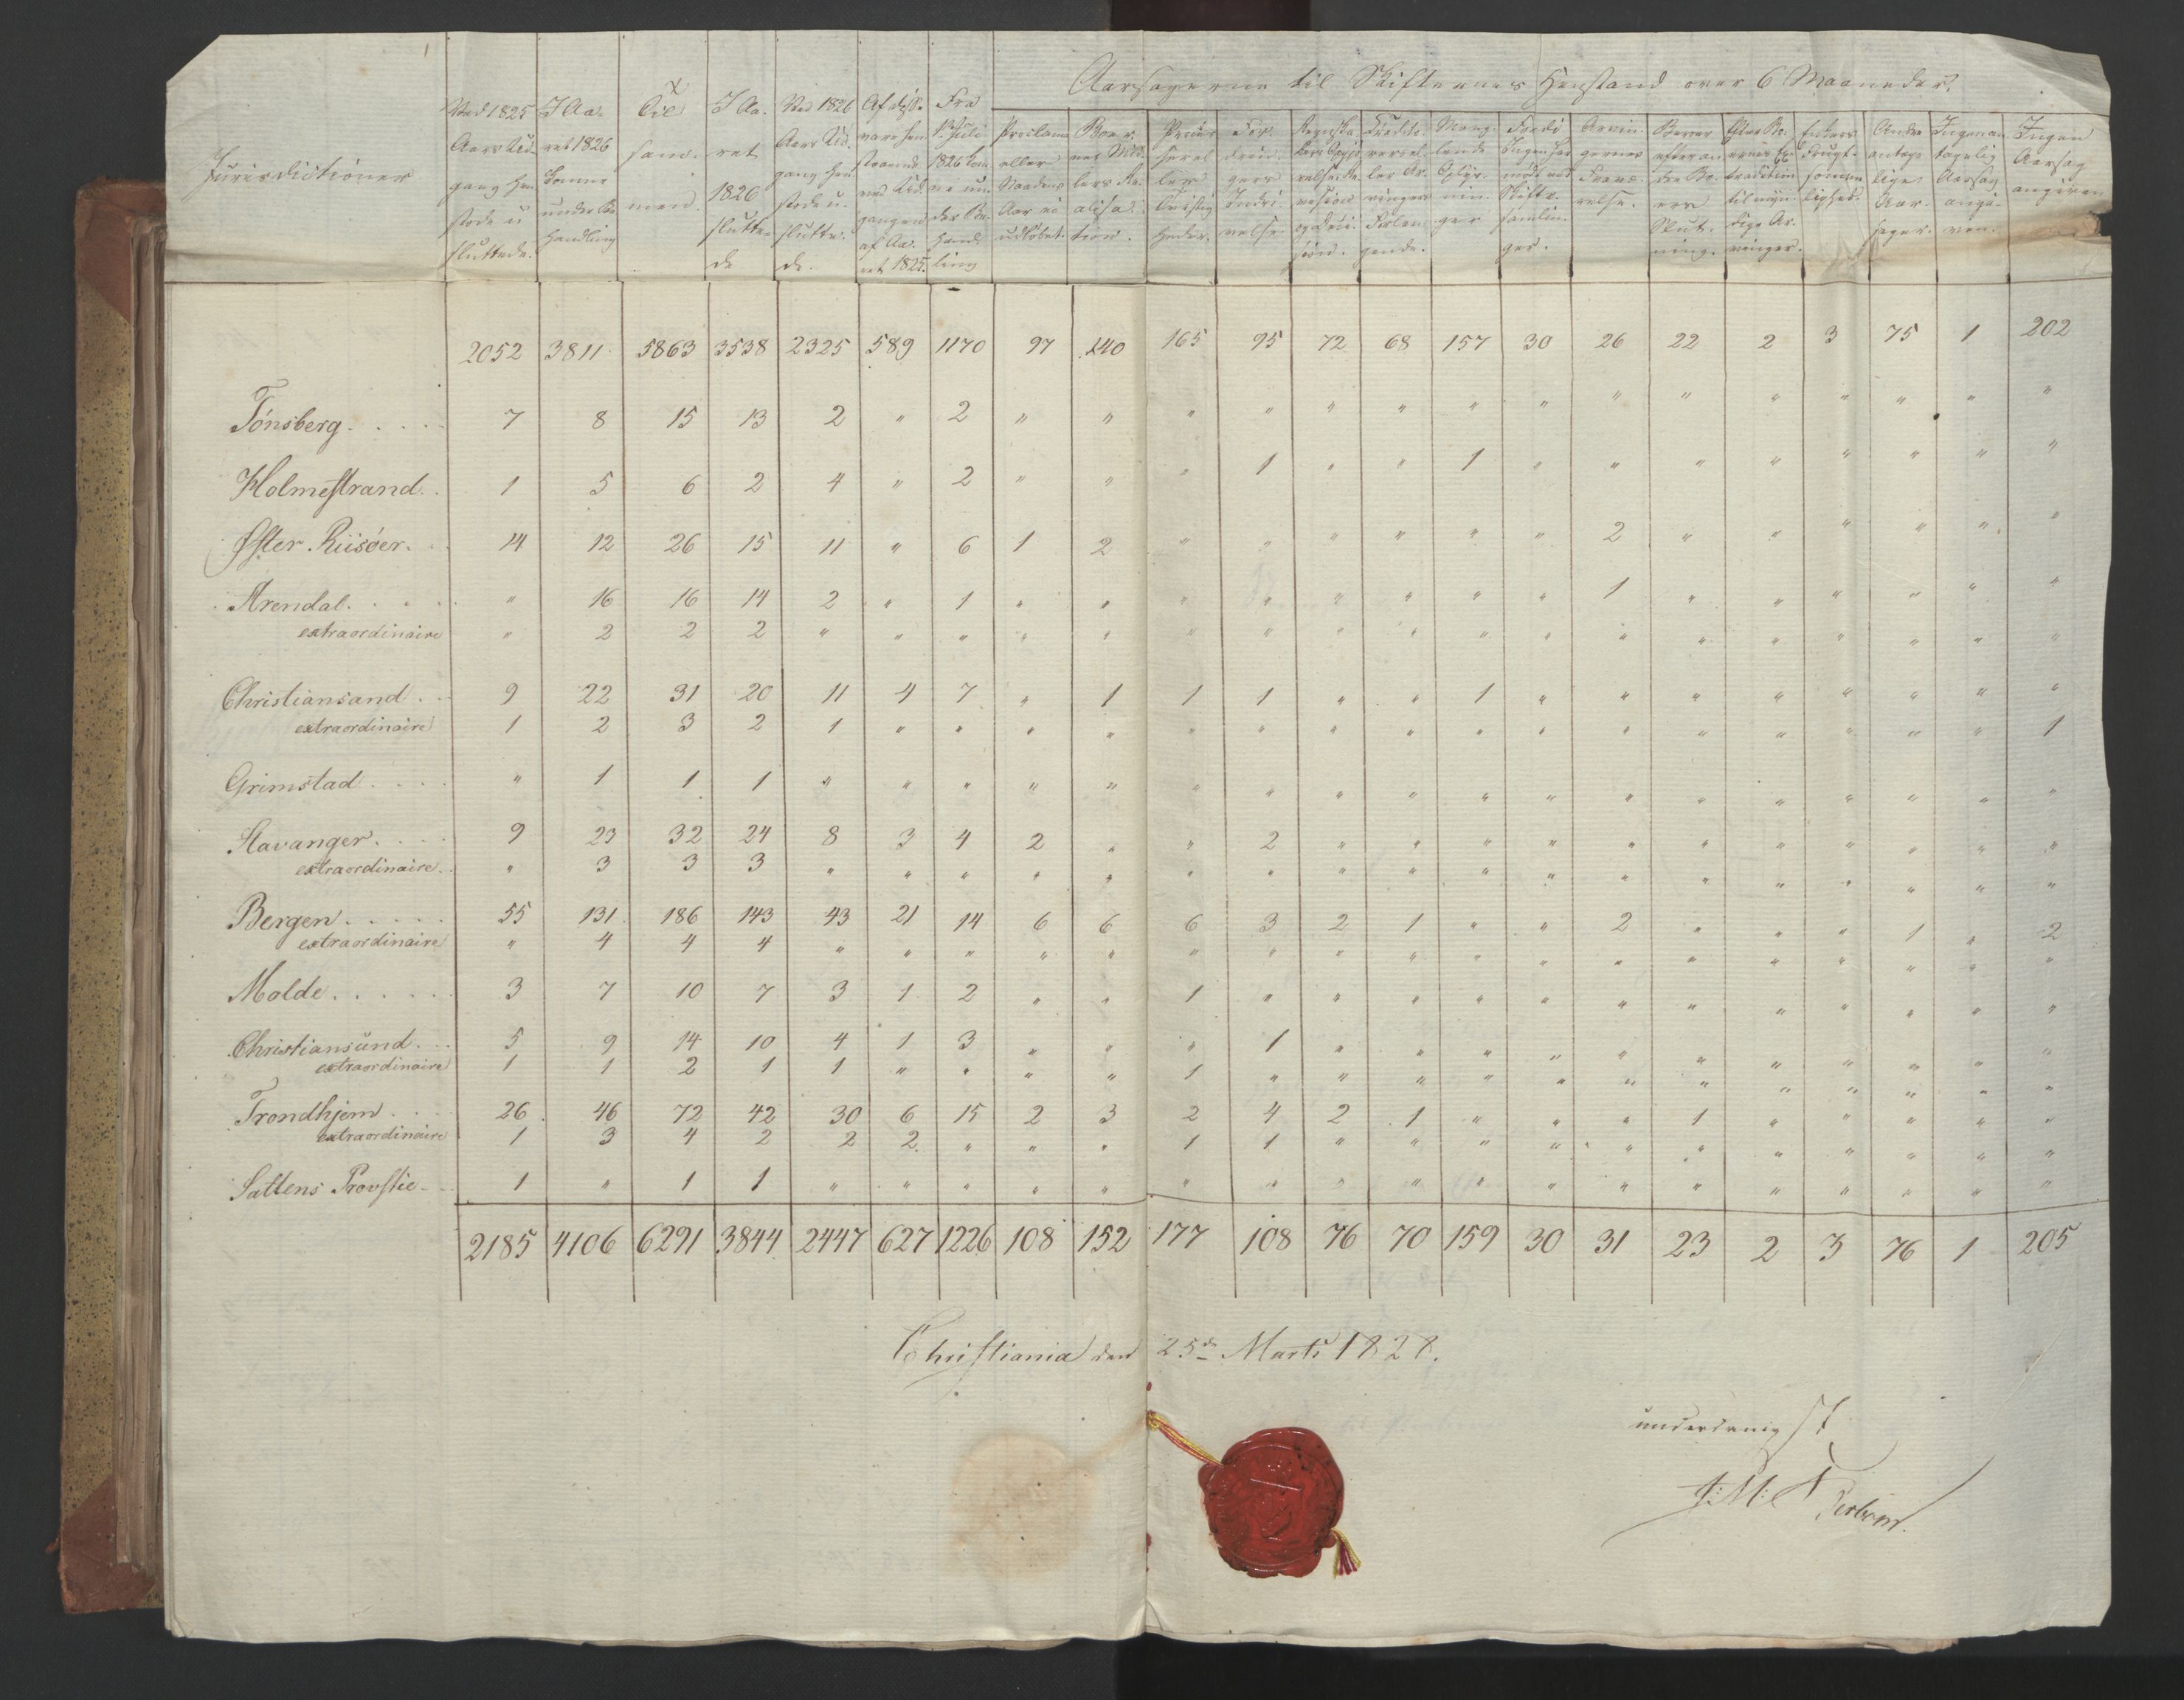 Aarsagerne til Skifternes Henstand over 6 Maaneder.
Jurisdictioner
Ved 1825 Aars Udgang henstode usluttede.
I Aaret 1826 komne under Behandling
Tilsammen.
I Aaret 1826 sluttede
Ved 1826 Aars Udgang henstode usluttede.
Af disse vare henstaaende ved Udgangen af Aaret 1825.
Fra 1ste Juli 1826 komne under Behandling
Proclama eller Naadens Aar ei udløbet.
Boernes Midlers Realisation.
Processer eller Tvistigheder.
Fordringers Inddrivelse
Creditorers eller Arvingers Forlangende.
Manglende Oplysninger
Fordi Ingen har mødt ved Skiftesamlinger.
Arvingernes Fravælse.
Boets efter andre Boers Slutning.
Enkers Frugtsommelighed.
Andre antagelige Aarsager.
Ingen antagelig Aarsag angiven.
Ingen Aarsag angiven
2052 3811 5863 3538 2325 589 1170 97 140 165 95 72 68 157 30 26 22 2 3 75 1 202
Tønsberg. . . . . 7 8 15 13 2 " 2 " " " " " " " " " " " " " " "
Holmestrand. . 1 5 6 2 4 " 2 " " " 1 " " 1 " " " " " " " "
Øster Riisøer. . 14 12 26 15 11 " 6 1 2 " " " " " " 2 " " " " " "
Arendal. . . . . " 16 16 14 2 " 1 " " " " " " " " 1 " " " " " "
extraordinaire " 2 2 2 " " " " " " " " " " " " " " " " " "
Christiansand . . 9 22 31 20 11 4 7 " 1 1 1 " " 1 " " " " " " " "
extraordinaire 1 2 3 2 1 " " " " " " " " " " " " " " " " 1
Grimstad . . . . " 1 1 1 " " " " " " " " " " " " " " " " " "
Stavanger. . . . 9 23 32 24 8 3 4 2 " " 2 " " " " " " " " " " "
extraordinaire. " 3 3 3 " " " " " " " " " " " " " " " " " "
Bergen . . . . . 55 131 186 143 43 21 14 6 6 6 3 2 1 " " 2 " " " 1 " 2
extraordinaire " 4 4 4 " " " " " " " " " " " " " " " " " "
Molde. . . . . . 3 7 10 7 3 1 2 " " 1 " " " " " " " " " " " "
Christiansund. . . 5 9 14 10 4 1 3 " " " 1 " " " " " " " " " " "
extraordinaire 1 1 2 1 1 " " " " 1 " " " " " " " " " " " "
Trondhjem . . . . 26 46 72 42 30 6 15 2 3 2 4 2 1 " " " 1 " " " " "
extraordinaire 1 3 4 2 2 2 " " " 1 1 " " " " " " " " " " "
Saltens Provstie . . 1 " 1 1 " " " " " " " " " " " " " " " " " "
2185 4106 6291 3844 2447 627 1226 108 152 177 108 76 70 159 30 31 23 2 3 76 1 205
Christiania den 25de Marts 1828.
underdanigst